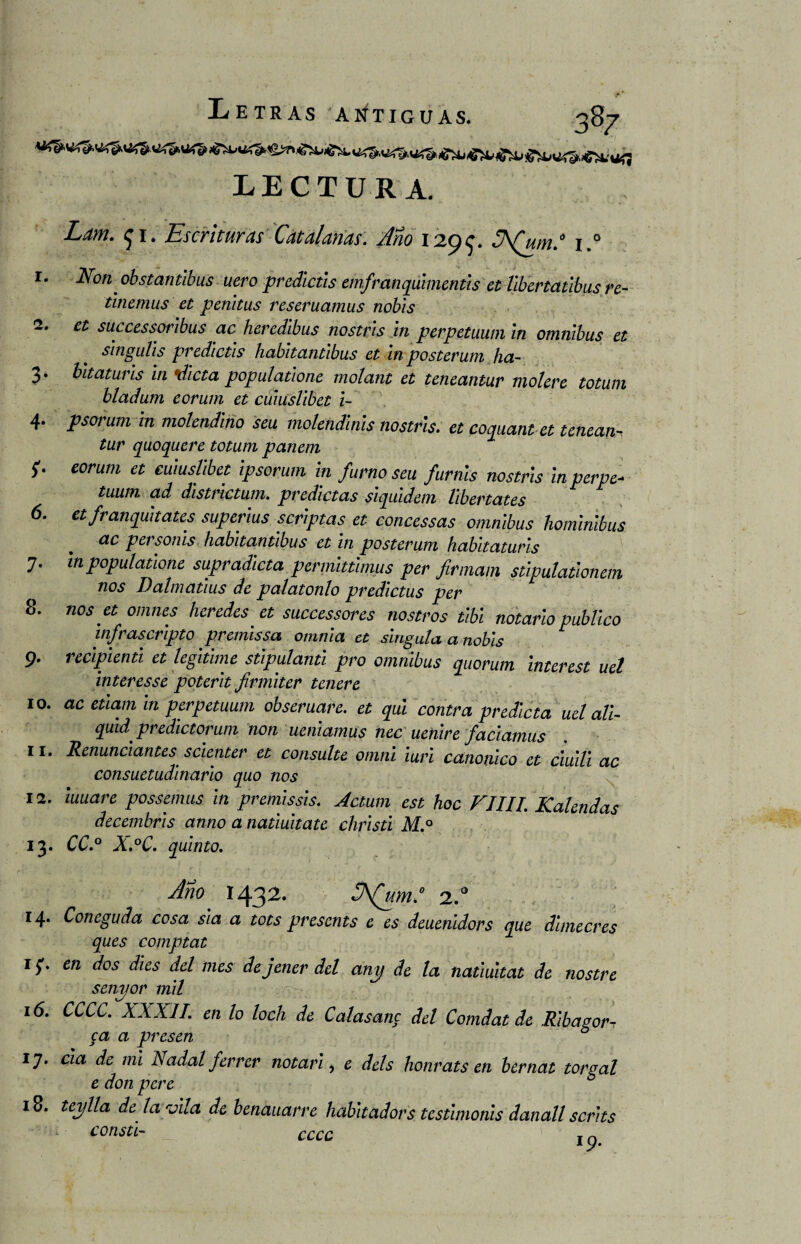 LETRAS ANTIGUAS. 387
LECTURA.
Lam. 51. Escrituras Catalanas. Año 1295. Num.º 1.º
1. Non obstantibus uero predictis emfranquimentis et libertatibus re-
tinemus et penitus reseruamus nobis
2. et successoribus ac heredibus nostris in perpetuum in omnibus et
singulis predictis habitantibus et in posterum ha-
3. bitaturis in dicta populatione molant et teneantur molere totum
bladum eorum et cuiuslibet i-
4. psorum in molendino seu molendinis nostris. et coquant et tenean-
tur quoquere totum panem
5. eorum et cuiuslibet ipsorum in furno seu furnis nostris in perpe-
tuum ad districtum. predictas siquidem libertates
6. et franquitates superius scriptas et concessas omnibus hominibus
ac personis habitantibus et in posterum habitaturis
7. in populatione supradicta permittimus per firmam stipulationem
nos Dalmatius de palatonlo predictus per
8. nos et omnes heredes et successores nostros tibi notario publico
infrascripto premissa omnia et singula a nobis
9. recipienti et legitime stipulanti pro omnibus quorum interest uel
interesse poterit firmiter tenere
10. ac etiam in perpetuum obseruare. et qui contra predicta uel ali-
quid predictorum non ueniamus nec uenire faciamus .
11. Renunciantes scienter et consulte omni iuri canonico et ciuili ac
consuetudinario quo nos
12. iuuare possemus in premissis. Actum est hoc VIIII. Kalendas
decembris anno a natiuitate christi M.º
13. CC.º X.ºC. quinto.
Año 1432. Num.º 2.º
14. Coneguda cosa sia a tots presents e es deuenidors que dimecres
ques comptat
15. en dos dies del mes de jener del any de la natiuitat de nostre
senyor mil
16. CCCC. XXXII. en lo loch de Calasanç del Comdat de Ribagor-
ça a presen
17. cia de mi Nadal ferrer notari, e dels honrats en bernat torgal
e don pere
18. teylla de la vila de benauarre habitadors testimonis danall scrits
consti- cccc 19.